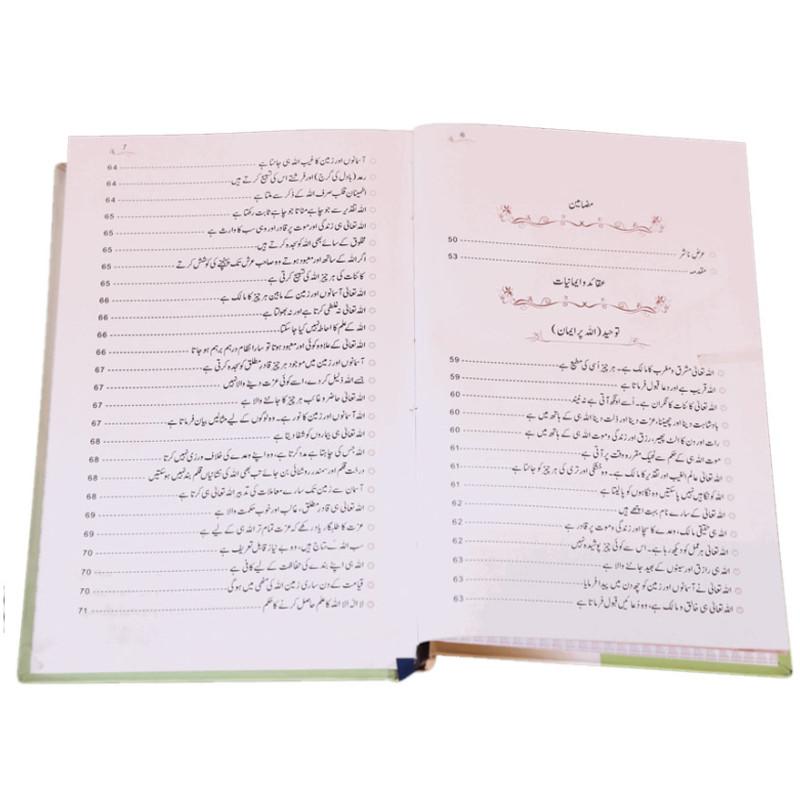 6
مضامین
عرض ناشر 50
مقدمہ 53
عقائد و ایمانیات
توحید (اللہ پر ایمان)
اللہ تعالیٰ مشرق و مغرب کا مالک ہے۔ ہر چیز اُسی کی مطیع ہے 59
اللہ قریب ہے اور دعا قبول فرماتا ہے 59
اللہ تعالیٰ کائنات کا نگران ہے۔ اُسے اونگھ آتی ہے نہ نیند 60
بادشاہت دینا اور چھیننا، عزت دینا اور ذلت دینا اللہ ہی کے ہاتھ میں ہے 60
رات اور دن کا الٹ پھیر، رزق اور زندگی و موت اللہ ہی کے ہاتھ میں ہے 60
موت اللہ ہی کے حکم سے ٹھیک مقررہ وقت پر آتی ہے 61
اللہ تعالیٰ عالم الغیب اور تقدیر کا مالک ہے۔ وہ خشکی اور تری کی ہر چیز کو جانتا ہے 61
اللہ کو نگاہیں نہیں پا سکتیں وہ نگاہوں کو پا لیتا ہے 61
اللہ تعالیٰ کے سارے نام بہت اچھے ہیں 62
اللہ ہی حقیقی مالک، وعدے کا سچا اور زندگی و موت پر قادر ہے 62
اللہ تعالیٰ ہر عمل کو دیکھ رہا ہے۔ اس سے کوئی چیز پوشیدہ نہیں 62
اللہ ہی رازق اور سینوں کے بھید جاننے والا ہے 63
اللہ تعالیٰ نے آسمانوں اور زمین کو چھ دن میں پیدا فرمایا 63
اللہ تعالیٰ ہی خالق و مالک ہے، وہ دعائیں قبول فرماتا ہے 63
7
آسمانوں اور زمین کا غیب اللہ ہی جانتا ہے 64
رعد (بادل کی گرج) اور فرشتے اس کی تسبیح کرتے ہیں 64
اطمینان قلب صرف اللہ کے ذکر سے ملتا ہے 64
اللہ تقدیر سے جو چاہے مٹاتا جو چاہے ثابت رکھتا ہے 65
اللہ تعالیٰ ہی زندگی اور موت پر قادر اور وہی سب کا وارث ہے 65
مخلوق کے سائے بھی اللہ کو سجدہ کرتے ہیں 65
اگر اللہ کے ساتھ اور معبود ہوتے تو وہ صاحب عرش تک پہنچنے کی کوشش کرتے 65
کائنات کی ہر چیز اللہ کی تسبیح کرتی ہے 65
اللہ تعالیٰ آسمانوں اور زمین کے مابین ہر چیز کا مالک ہے 66
اللہ تعالیٰ نہ غلطی کرتا ہے اور نہ بھولتا ہے 66
اللہ کے علم کا احاطہ نہیں کیا جا سکتا 66
اللہ تعالیٰ کے علاوہ کوئی اور معبود ہوتا تو سارا نظام درہم برہم ہو جاتا 66
آسمانوں اور زمین میں موجود ہر چیز قادر مطلق کو سجدہ کرتی ہے 67
جسے اللہ ذلیل کر دے، اسے کوئی عزت دینے والا نہیں 67
اللہ تعالیٰ حاضر و غائب ہر چیز کا جاننے والا ہے 67
اللہ آسمانوں اور زمین کا نور ہے۔ وہ لوگوں کے لیے مثالیں بیان فرماتا ہے 67
اللہ تعالیٰ ہی بیماروں کو شفا دیتا ہے 68
اللہ جس کی چاہتا ہے مدد کرتا ہے، وہ اپنے وعدے کی خلاف ورزی نہیں کرتا 68
درخت قلم اور سمندر روشنائی بن جائے تب بھی اللہ کی نشانیاں قلم بند نہیں ہو سکتیں 68
آسمان سے زمین تک سارے معاملات کی تدبیر اللہ تعالیٰ ہی کرتا ہے 68
اللہ ہی قادر مطلق، غالب اور خوب حکمت والا ہے 69
عزت کا طلبگار یاد رکھے کہ عزت تمام تر اللہ ہی کے لیے ہے 69
سب اللہ کے محتاج ہیں، وہ بے نیاز قابل تعریف ہے 70
اللہ ہی اپنے بندے کی حفاظت کے لیے کافی ہے 70
قیامت کے دن ساری زمین اللہ کی مٹھی میں ہو گی 70
لا الٰہ الا اللہ کا علم حاصل کرنے کا حکم 71